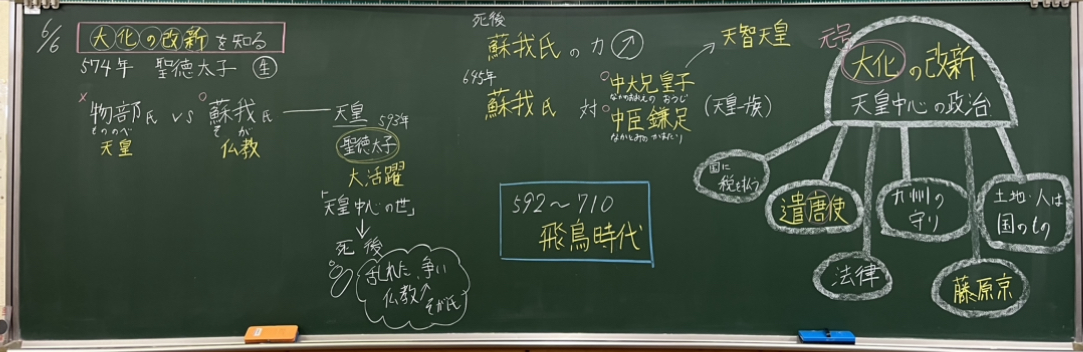 6/6
大化の改新を知る
574年 聖徳太子 生
×物部氏 vs ○蘇我氏
もののべ そが
天皇 仏教
天皇
593年
聖徳太子
大活躍
「天皇中心の世」
死後
乱れた、争い
仏教↑
そが氏
死後
蘇我氏の力↗
695年
蘇我氏 対
○中大兄皇子
なかのおおえの おうじ
○中臣鎌足
なかとみの かまたり
(天皇一族)
天智天皇
592〜710
飛鳥時代
元号
大化の改新
天皇中心の政治
国に
税を払う
遣唐使
法律
九州の
守り
藤原京
土地・人は
国のもの